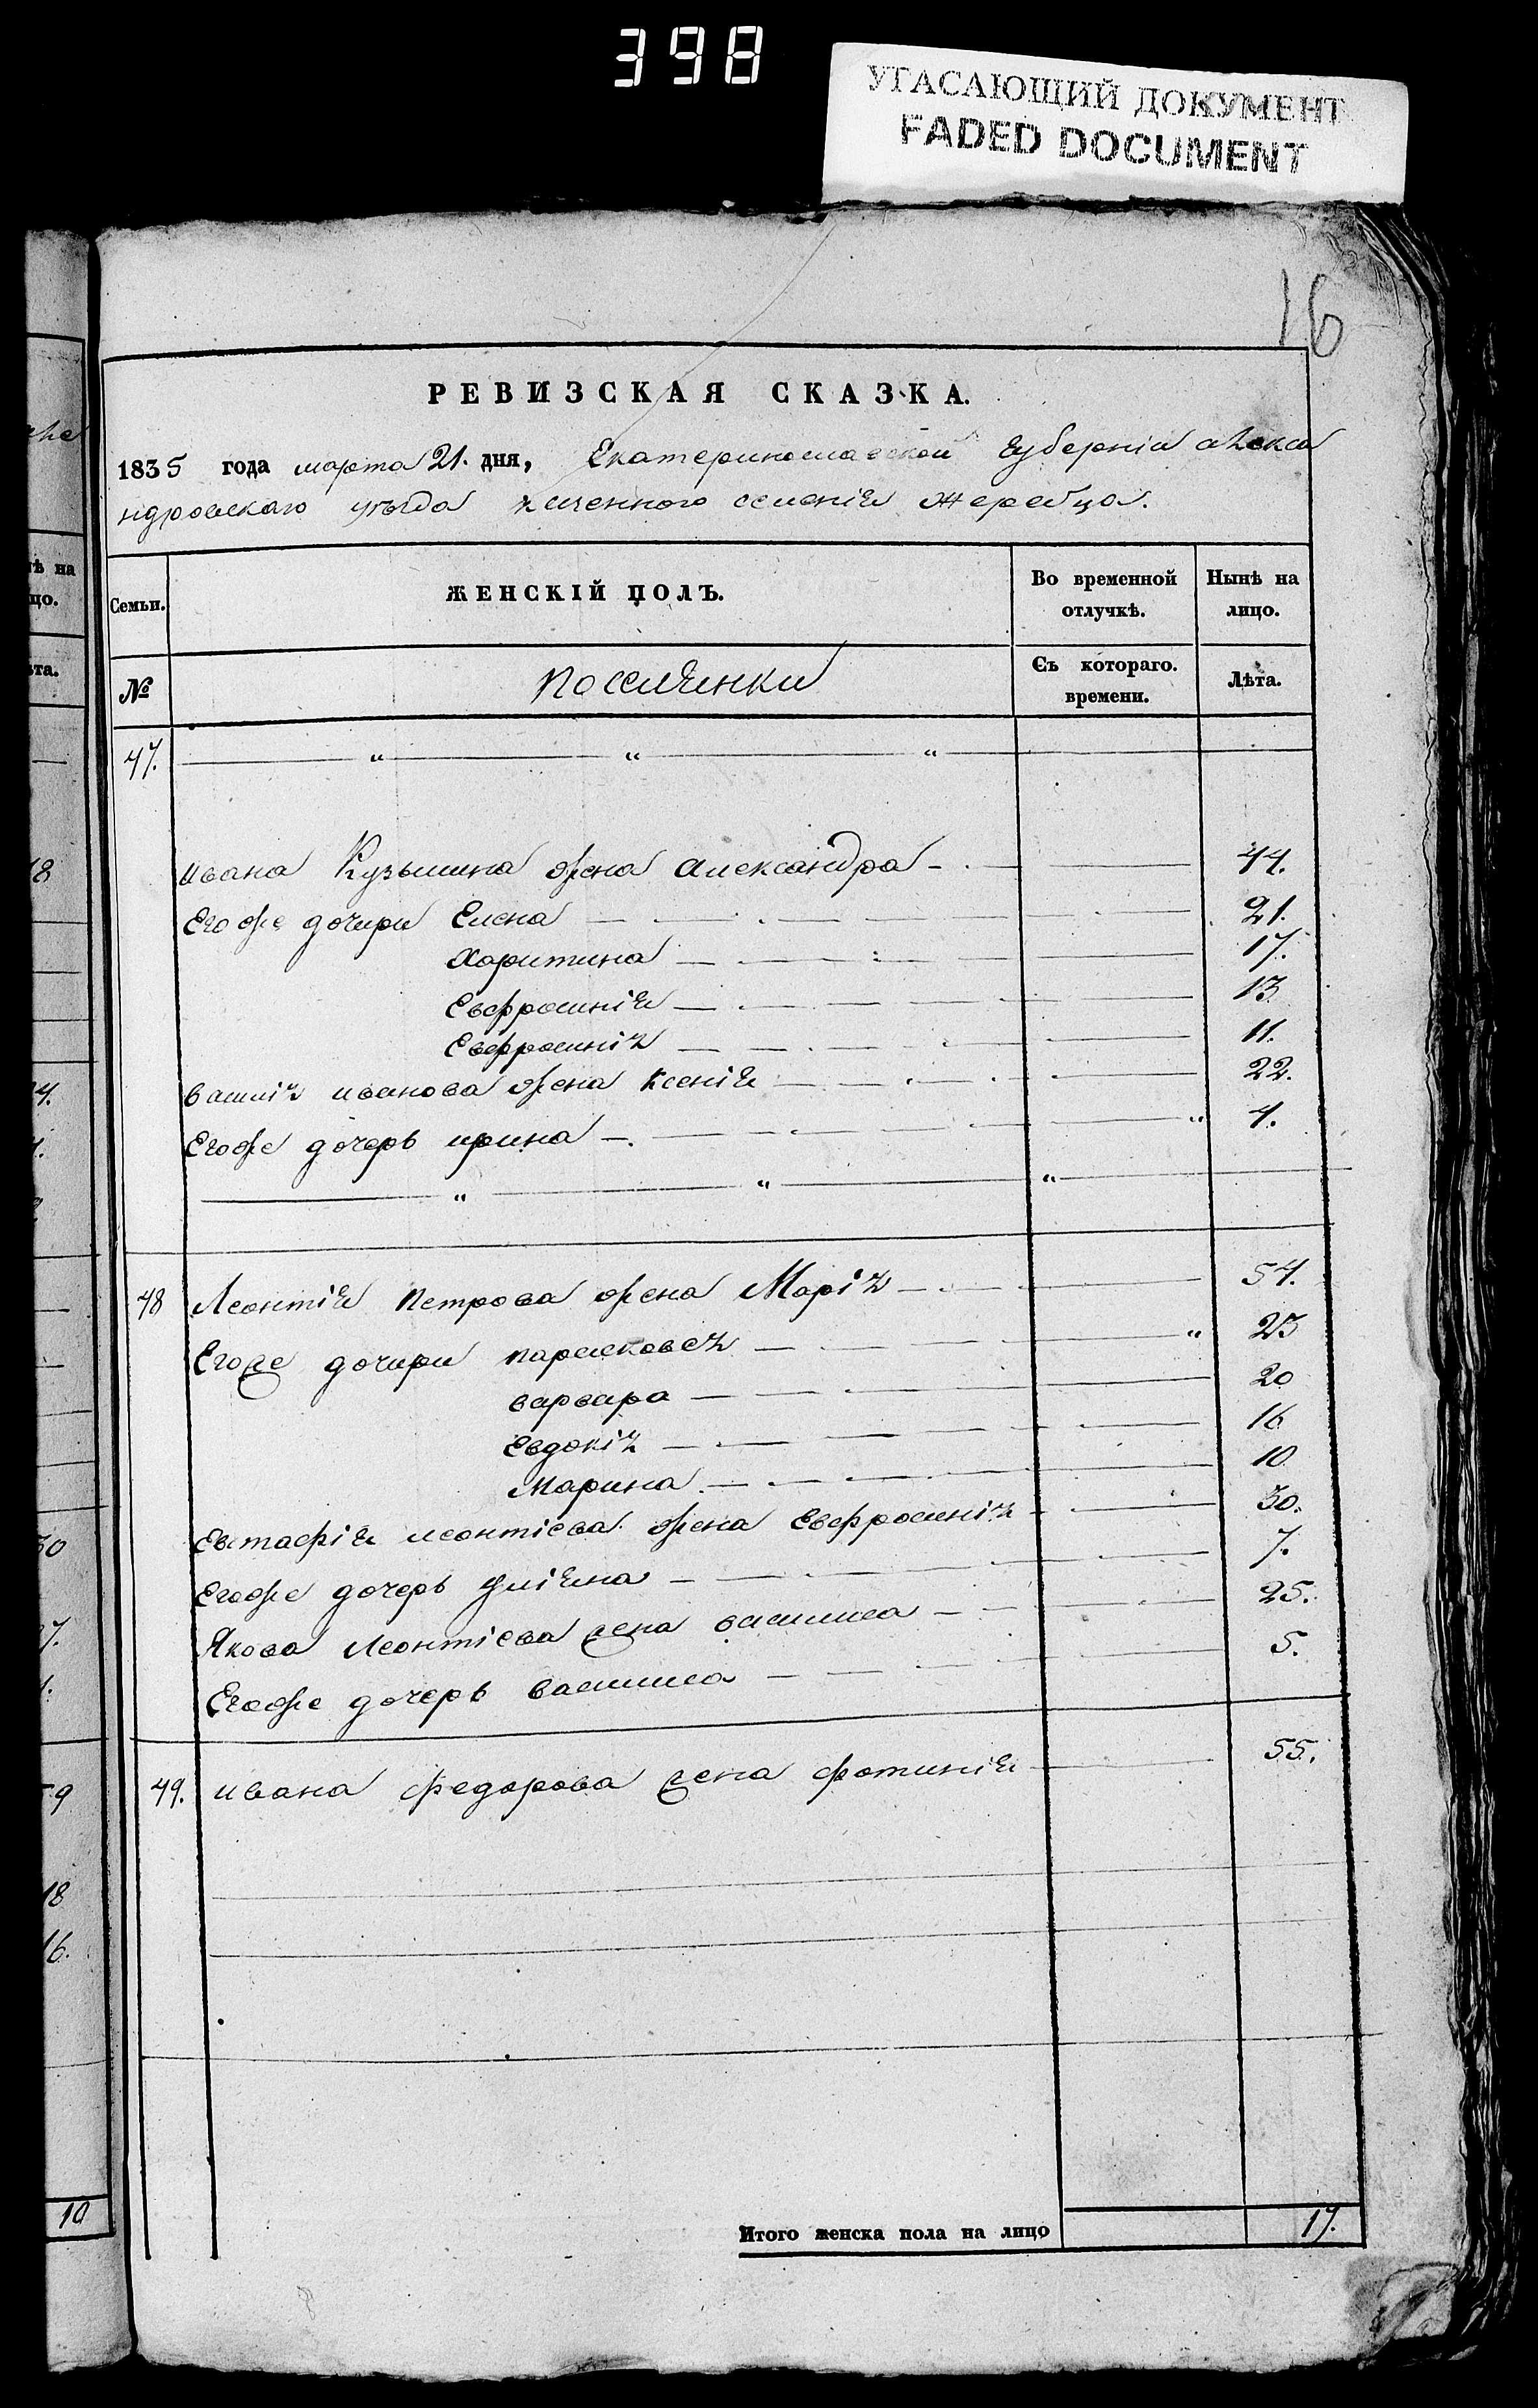 398
УГАСАЮЩИЙ ДОКУМЕНТ
FADED DOCUMENT
16
РЕВИЗСКАЯ СКАЗКА.
1835 года марта 21. дня, Екатеринославской Губерніи Алекса
ндровскаго уѣзда казенного селенія Жеребца.
Семьи.
ЖЕНСКІЙ ПОЛЪ.
Во временной отлучкѣ.
Нынѣ на лицо.
№
Поселянки
Съ котораго. времени.
Лѣта.
47.
Ивана Кузьмина жена Александра 44.
Егоже дочири Елена 21.
Харитина 17.
Евфросинія 13
Евфросинія 11.
Василія Иванова жена Ксенія 22.
Егоже дочерь Ирина 4.
48 Леонтія Петрова жена Марія 54.
Егоже дочири Парасковея 23
Варвара 20
Евдокія 16
Марина 10
Евтафія Леонтіева жена Евфросинія 30.
Егоже дочерь Уліяна 7.
Якова Леонтіева жена Василиса 25.
Егоже дочерь Василиса 5.
49. Ивана Федорова жена Фотинія 55.
Итого женска пола на лицо 17.
ѣ на
цо.
ѣта.
18
30
59
18
16.
10